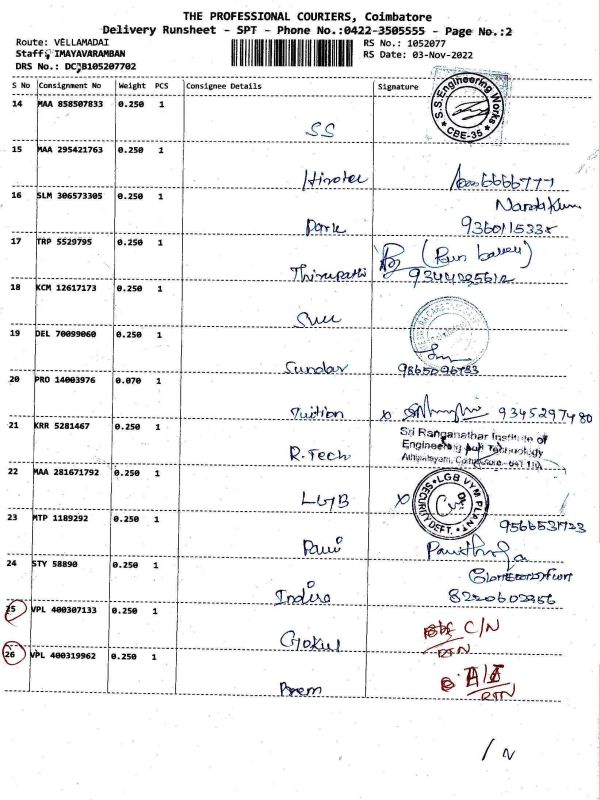 THE PROFESSIONAL COURIERS, Coimbatore
Delivery Runsheet - SPT - Phone No.:0422-3505555 - Page No.:2
Route: VELLAMADAI RS No.: 1052077
Staff: IMAYAVARAMBAN RS Date: 03-Nov-2022
DRS No.: DC,B105207702
S No Consignment No Weight PCS Consignee Details Signature
14 MAA 858507833 0.250 1
S.S.Engineering Works
* CBE-35 *
SS
15 MAA 295421763 0.250 1
16 SLM 306573305 0.250 1
Park
17 TRP 5529795 0.250 1
Thirupathi
18 KCM 12617173 0.250 1
19 DEL 70099060 0.250 1
Sundar
20 PRO 14003976 0.070 1
Tuition x 9345297480
21 KRR 5281467 0.250 1
R.Tech
Sri Ranganathar Institute of
Engineering and Technology
Athipalayam, Coimbatore - 641 110
22 MAA 281671792 0.250 1
LGB x
LGB VYM PLANT
SECURITY DEPT.
23 MTP 1189292 0.250 1
24 STY 58890 0.250 1
Indira
25 VPL 400307133 0.250 1
Gokul C/N
RTN
26 VPL 400319962 0.250 1
Prem
RTN